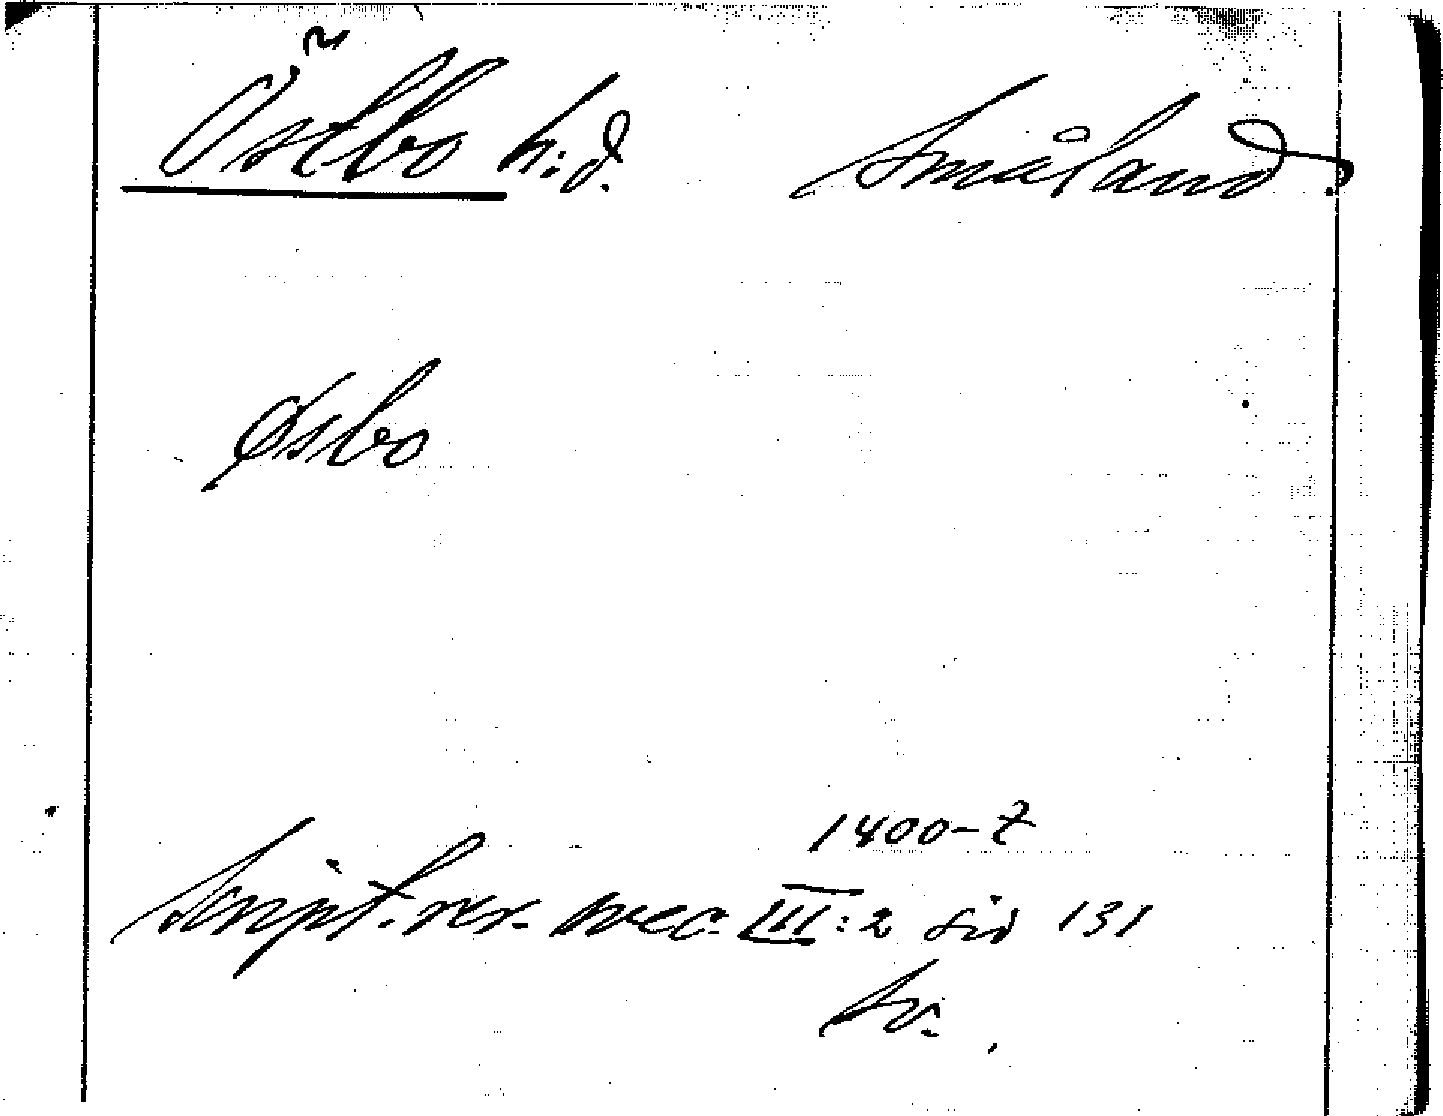 Östbo h:d. Småland.
Øsbo
1400-t
Script. rer. svec. III:2 sid 131
sv.